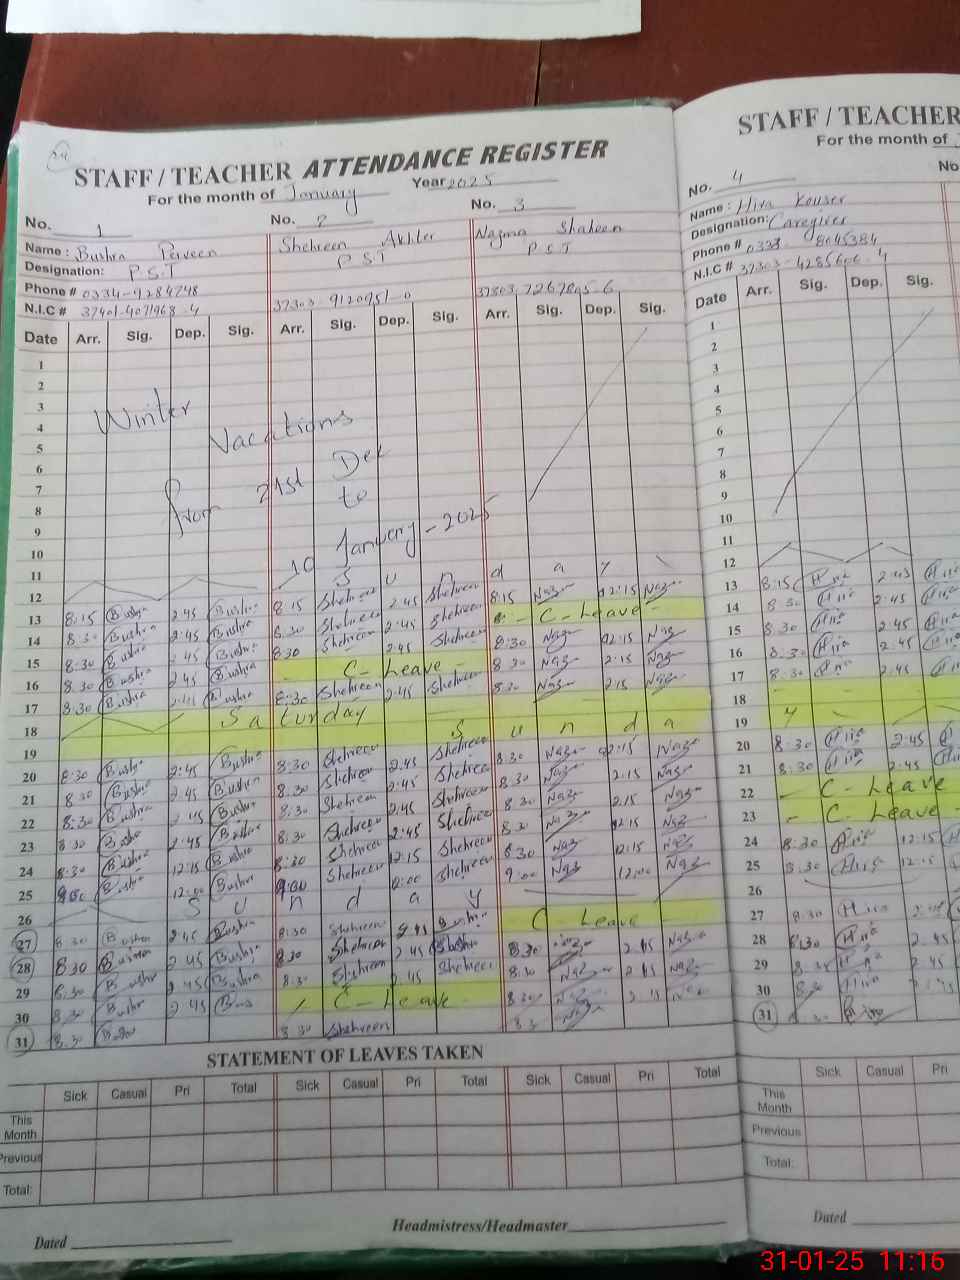 STAFF / TEACHER ATTENDANCE REGISTER
For the month of January Year 2025
No. 1 No. 2 No. 3
Name : Bushra Perveen Shehreen Akhter Nagma Shaheen
Designation: P.S.T P S T P S T
Phone # 0334-9284248
N.I.C # 37401-4071968-4 37303 9120951-0
Date Arr. Sig. Dep. Sig. Arr. Sig. Dep. Sig. Arr. Sig. Dep. Sig.
1
2
3
4
5
6
7
8
9
10
11
12
Winter
Vacations
from 21st Dec
to
10 January-2025
S u n d a y
13 8:15 Bushra 2:45 Bushra 8:15 Shehreen 2:45 Shehreen 8:15 Naz 12:15 Naz
14 8:30 Bushra 2:45 Bushra 8:30 Shehreen 2:45 Shehreen - C-Leave -
15 8:30 Bushra 2:45 Bushra 8:30 Shehreen 2:45 Shehreen 8:30 Naz 2:15 Naz
16 8:30 Bushra 2:45 Bushra - C-Leave - 8:30 Naz 2:15 Naz
17 8:30 Bushra 2:45 Bushra 8:30 Shehreen 2:45 Shehreen 8:30 Naz 2:15 Naz
18 Saturday
19 S u n d a
20 8:30 Bushra 2:45 Bushra 8:30 Shehreen 2:45 Shehreen 8:30 Naz 2:15 Naz
21 8:30 Bushra 2:45 Bushra 8:30 Shehreen 2:45 Shehreen 8:30 Naz 2:15 Naz
22 8:30 Bushra 2:45 Bushra 8:30 Shehreen 2:45 Shehreen 8:30 Naz 2:15 Naz
23 8:30 Bushra 2:45 Bushra 8:30 Shehreen 2:45 Shehreen 8:30 Naz 2:15 Naz
24 8:30 Bushra 12:15 Bushra 8:30 Shehreen 12:15 Shehreen 8:30 Naz 12:15 Naz
25 9:00 Bushra 12:00 Bushra 9:00 Shehreen 12:00 Shehreen 9:00 Naz 12:00 Naz
26 S u n d a y
27 8:30 Bushra 2:45 Bushra 8:30 Shehreen 2:45 Bushra C-Leave
28 8:30 Bushra 2:45 Bushra 8:30 Shehreen 2:45 Bushra 8:30 Naz 2:45 Naz
29 8:30 Bushra 2:45 Bushra 8:30 Shehreen 2:45 Shehreen 8:30 Naz 2:45 Naz
30 8:30 Bushra 2:45 C-Leave - 8:30 2:45
31 8:30 8:30 Shehreen
STATEMENT OF LEAVES TAKEN
Sick Casual Pri Total Sick Casual Pri Total Sick Casual Pri Total
This Month
Previous
Total:
Dated
Headmistress/Headmaster
STAFF / TEACHER
For the month of
No. 4 No
Name : Hira Kouser
Designation: Caregiver
Phone # 0333- 8045384
N.I.C # 37303-4285606-4
Date Arr. Sig. Dep. Sig.
1
2
3
4
5
6
7
8
9
10
11
12
13 8:15 Hira 2:45 Hira
14 8:30 Hira 2:45 Hira
15 8:30 Hira 2:45 Hira
16 8:30 Hira 2:45 Hira
17 8:30 Hira 2:45
18
19 y
20 8:30 Hira 2:45
21 8:30 Hira 2:45
22 - C-Leave
23 - C-Leave -
24 8:30 Hira 12:15
25 8:30 Hira
26
27 8:30 Hira
28 8:30 Hira 2:45
29 8:30 Hira 2:45
30 8:30 Hira
31
Sick Casual Pri
This Month
Previous
Total:
Dated
31-01-25 11:16